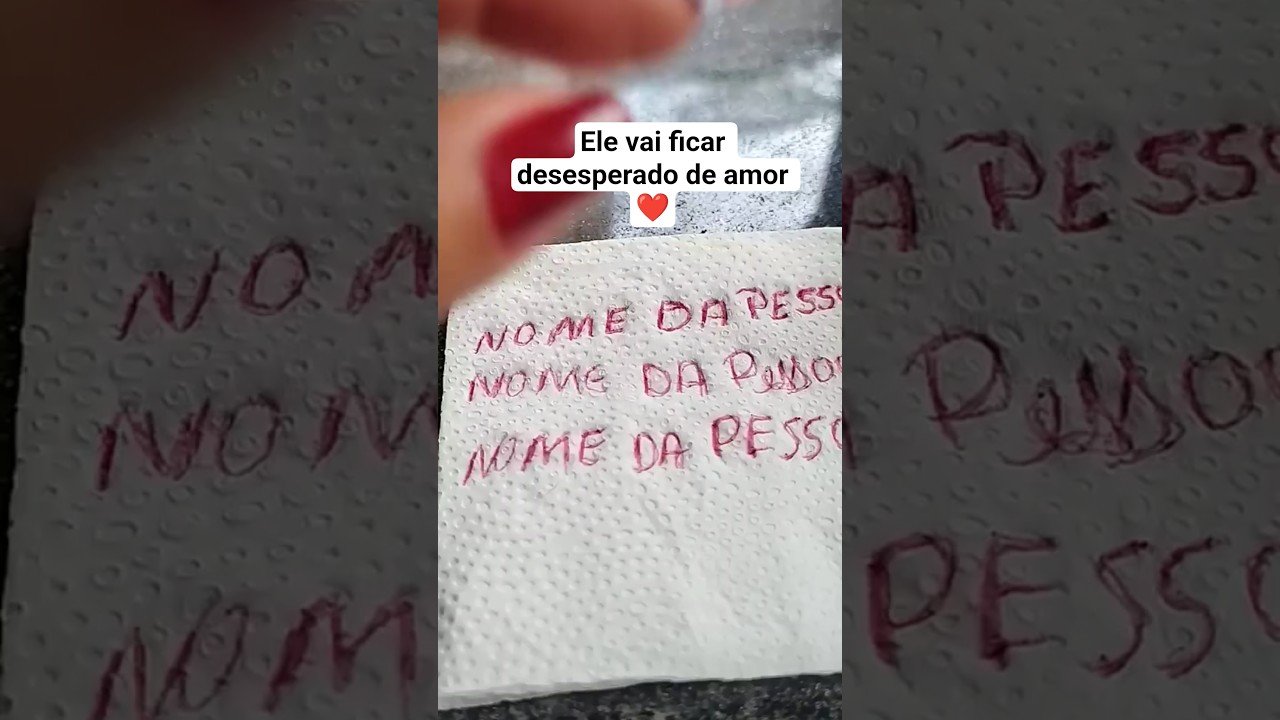 Ele vai ficar
desesperado de amor
❤️
NOME DA PESSO
NOME DA Pesso
NOME DA PESSO